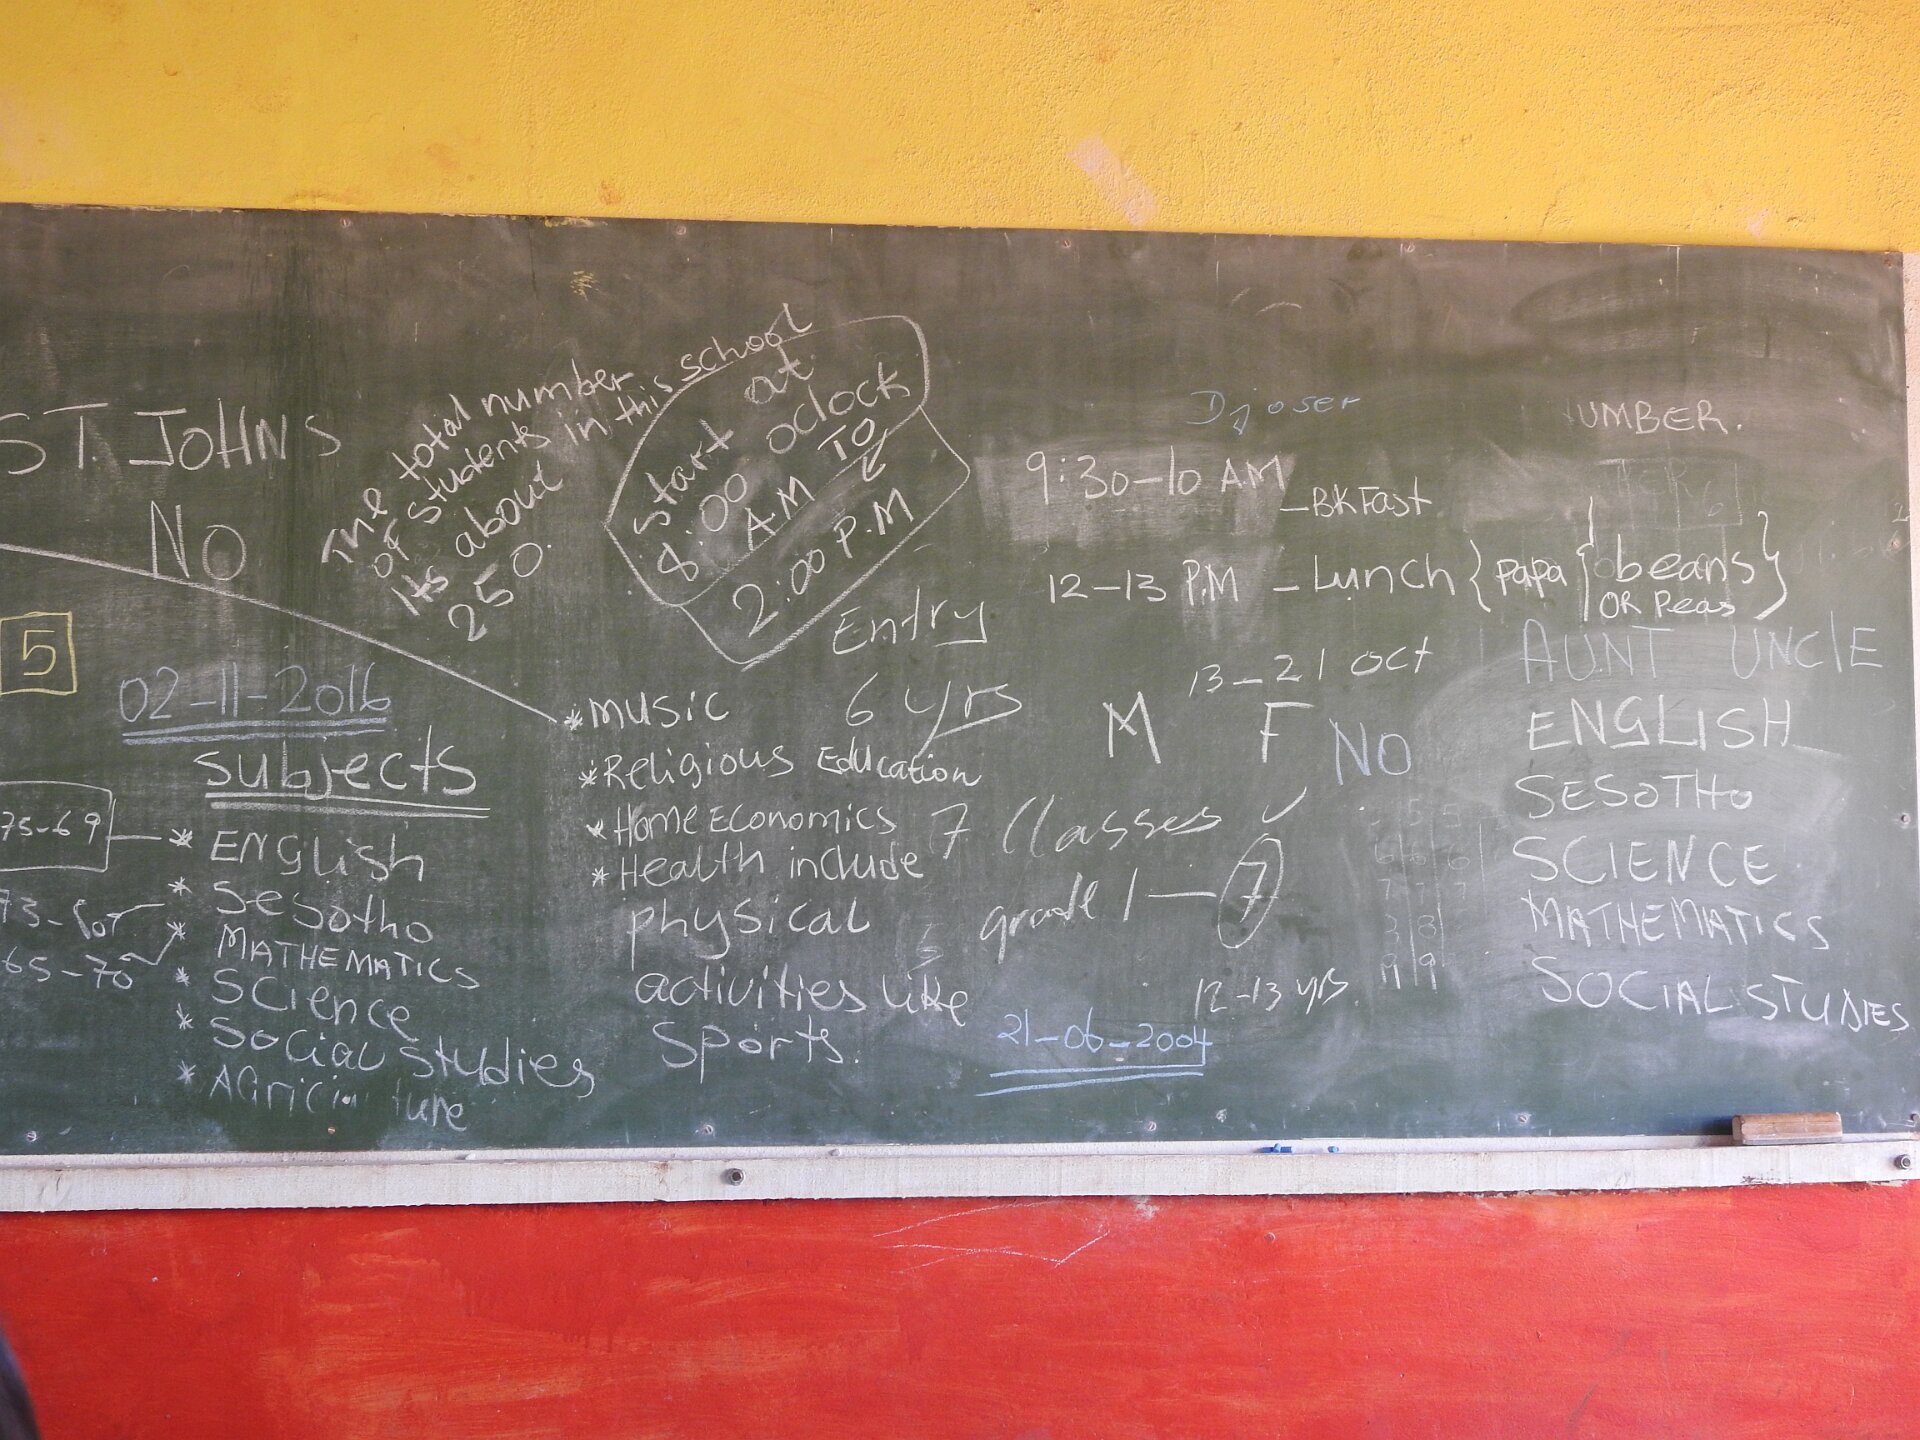 ST. JOHNS
NO
5
02-11-2016
subjects
75-69
* ENGLish
* Sesotho
* MATHEMATICS
* Science
* Social studies
* AGrici ture
65-70
The total number
of students in this school
Its about
250.
start at
8:00 oclock
A.M TO
2:00 P.M
* Music
* Religious Education
* Home Economics
* Health include
physical
activities like
Sports.
Entry
6 yrs
7 Classes
grade 1 — 7
12-13 yrs
21-06-2004
9:30-10 AM - BKFast
12-13 P.M - Lunch { papa { beans }
OR Peas
13-21 oct
M F NO
UMBER.
AUNT UNCLE
ENGLISH
SESOTHO
SCIENCE
MATHEMATICS
SOCIAL STUDIES